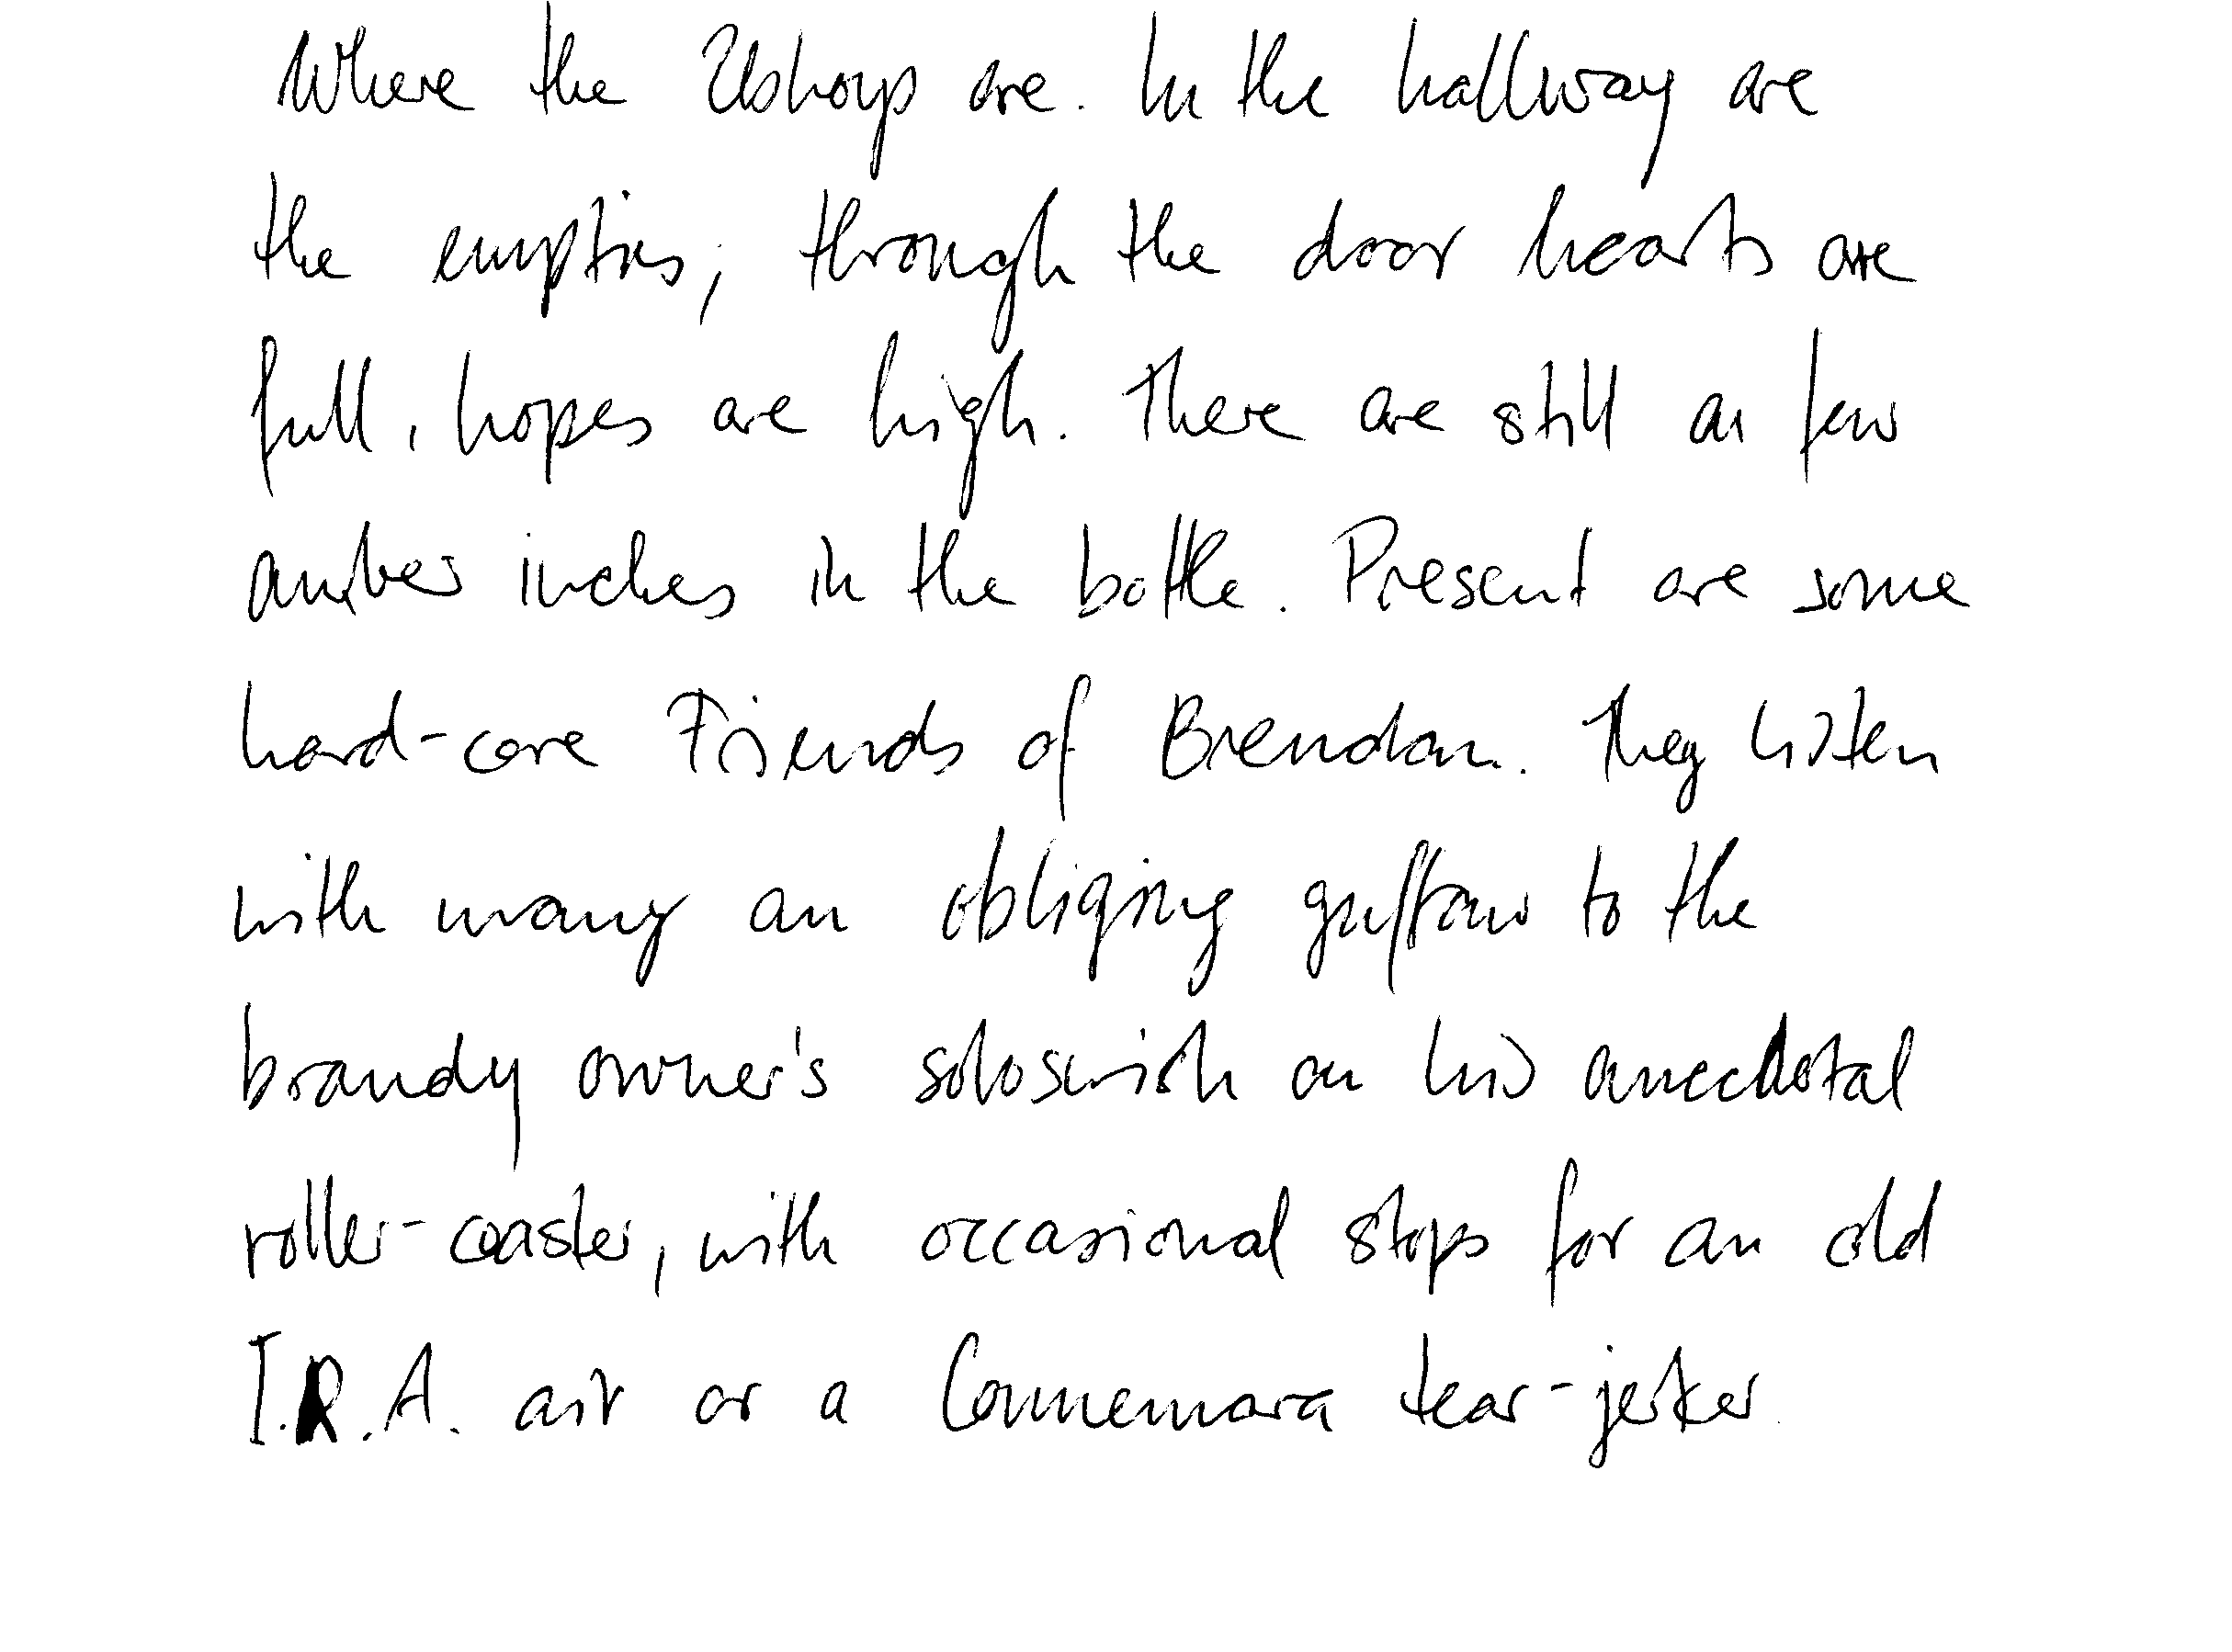 Where the Bishops are. In the hallway are
the empties; through the door hearts are
full, hopes are high. There are still a few
amber inches in the bottle. Present are some
hard-core Friends of Brendan. They listen
with many an obliging guffaw to the
brandy owner's on his anecdotal
roller-coaster, with occasional stops for an old
I.R.A. air or a Connemara tear-jerker.